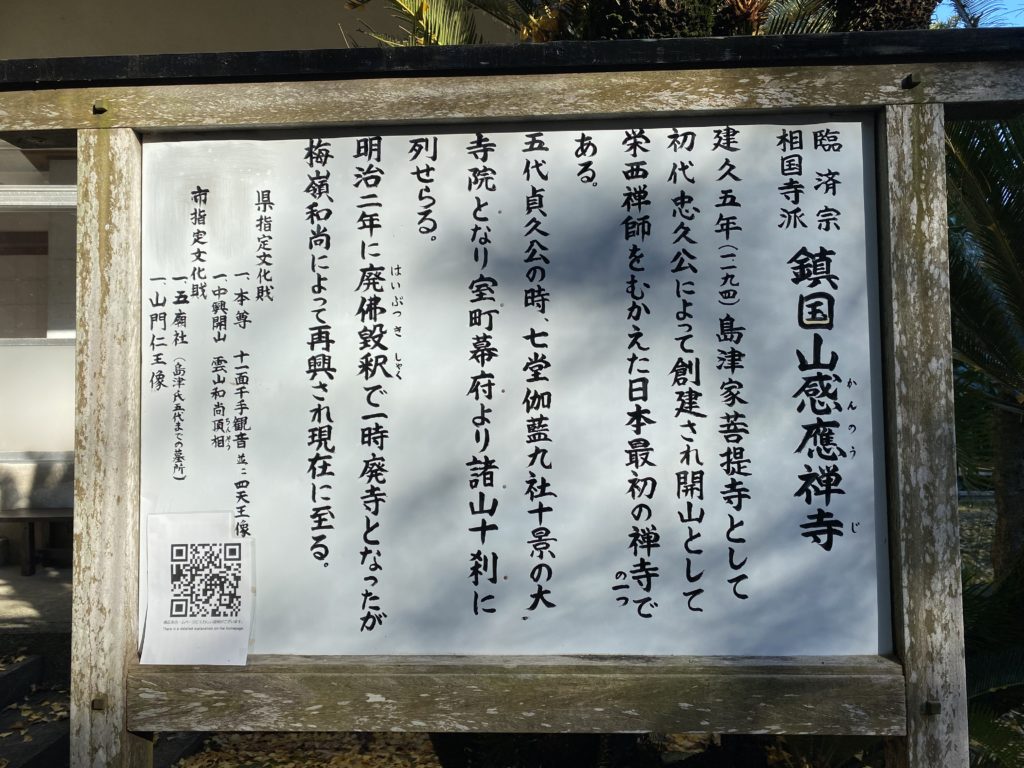 臨済宗
相国寺派
鎮国山感應禅寺
かんのうじ
建久五年（一一九四）島津家菩提寺として
初代忠久公によって創建され開山として
栄西禅師をむかえた日本最初の禅寺で
の一つ
ある。
五代貞久公の時、七堂伽藍九社十景の大
寺院となり室町幕府より諸山十刹に
列せらる。
明治二年に廃佛毀釈で一時廃寺となったが
はいぶつきしゃく
梅嶺和尚によって再興され現在に至る。
県指定文化財
一、本尊 十一面千手観音並二四天王像
一、中興開山 雲山和尚頂相
ちんぞう
市指定文化財
一、五廟社（島津氏五代までの墓所）
一、山門仁王像
There is a detailed explanation on the homepage.